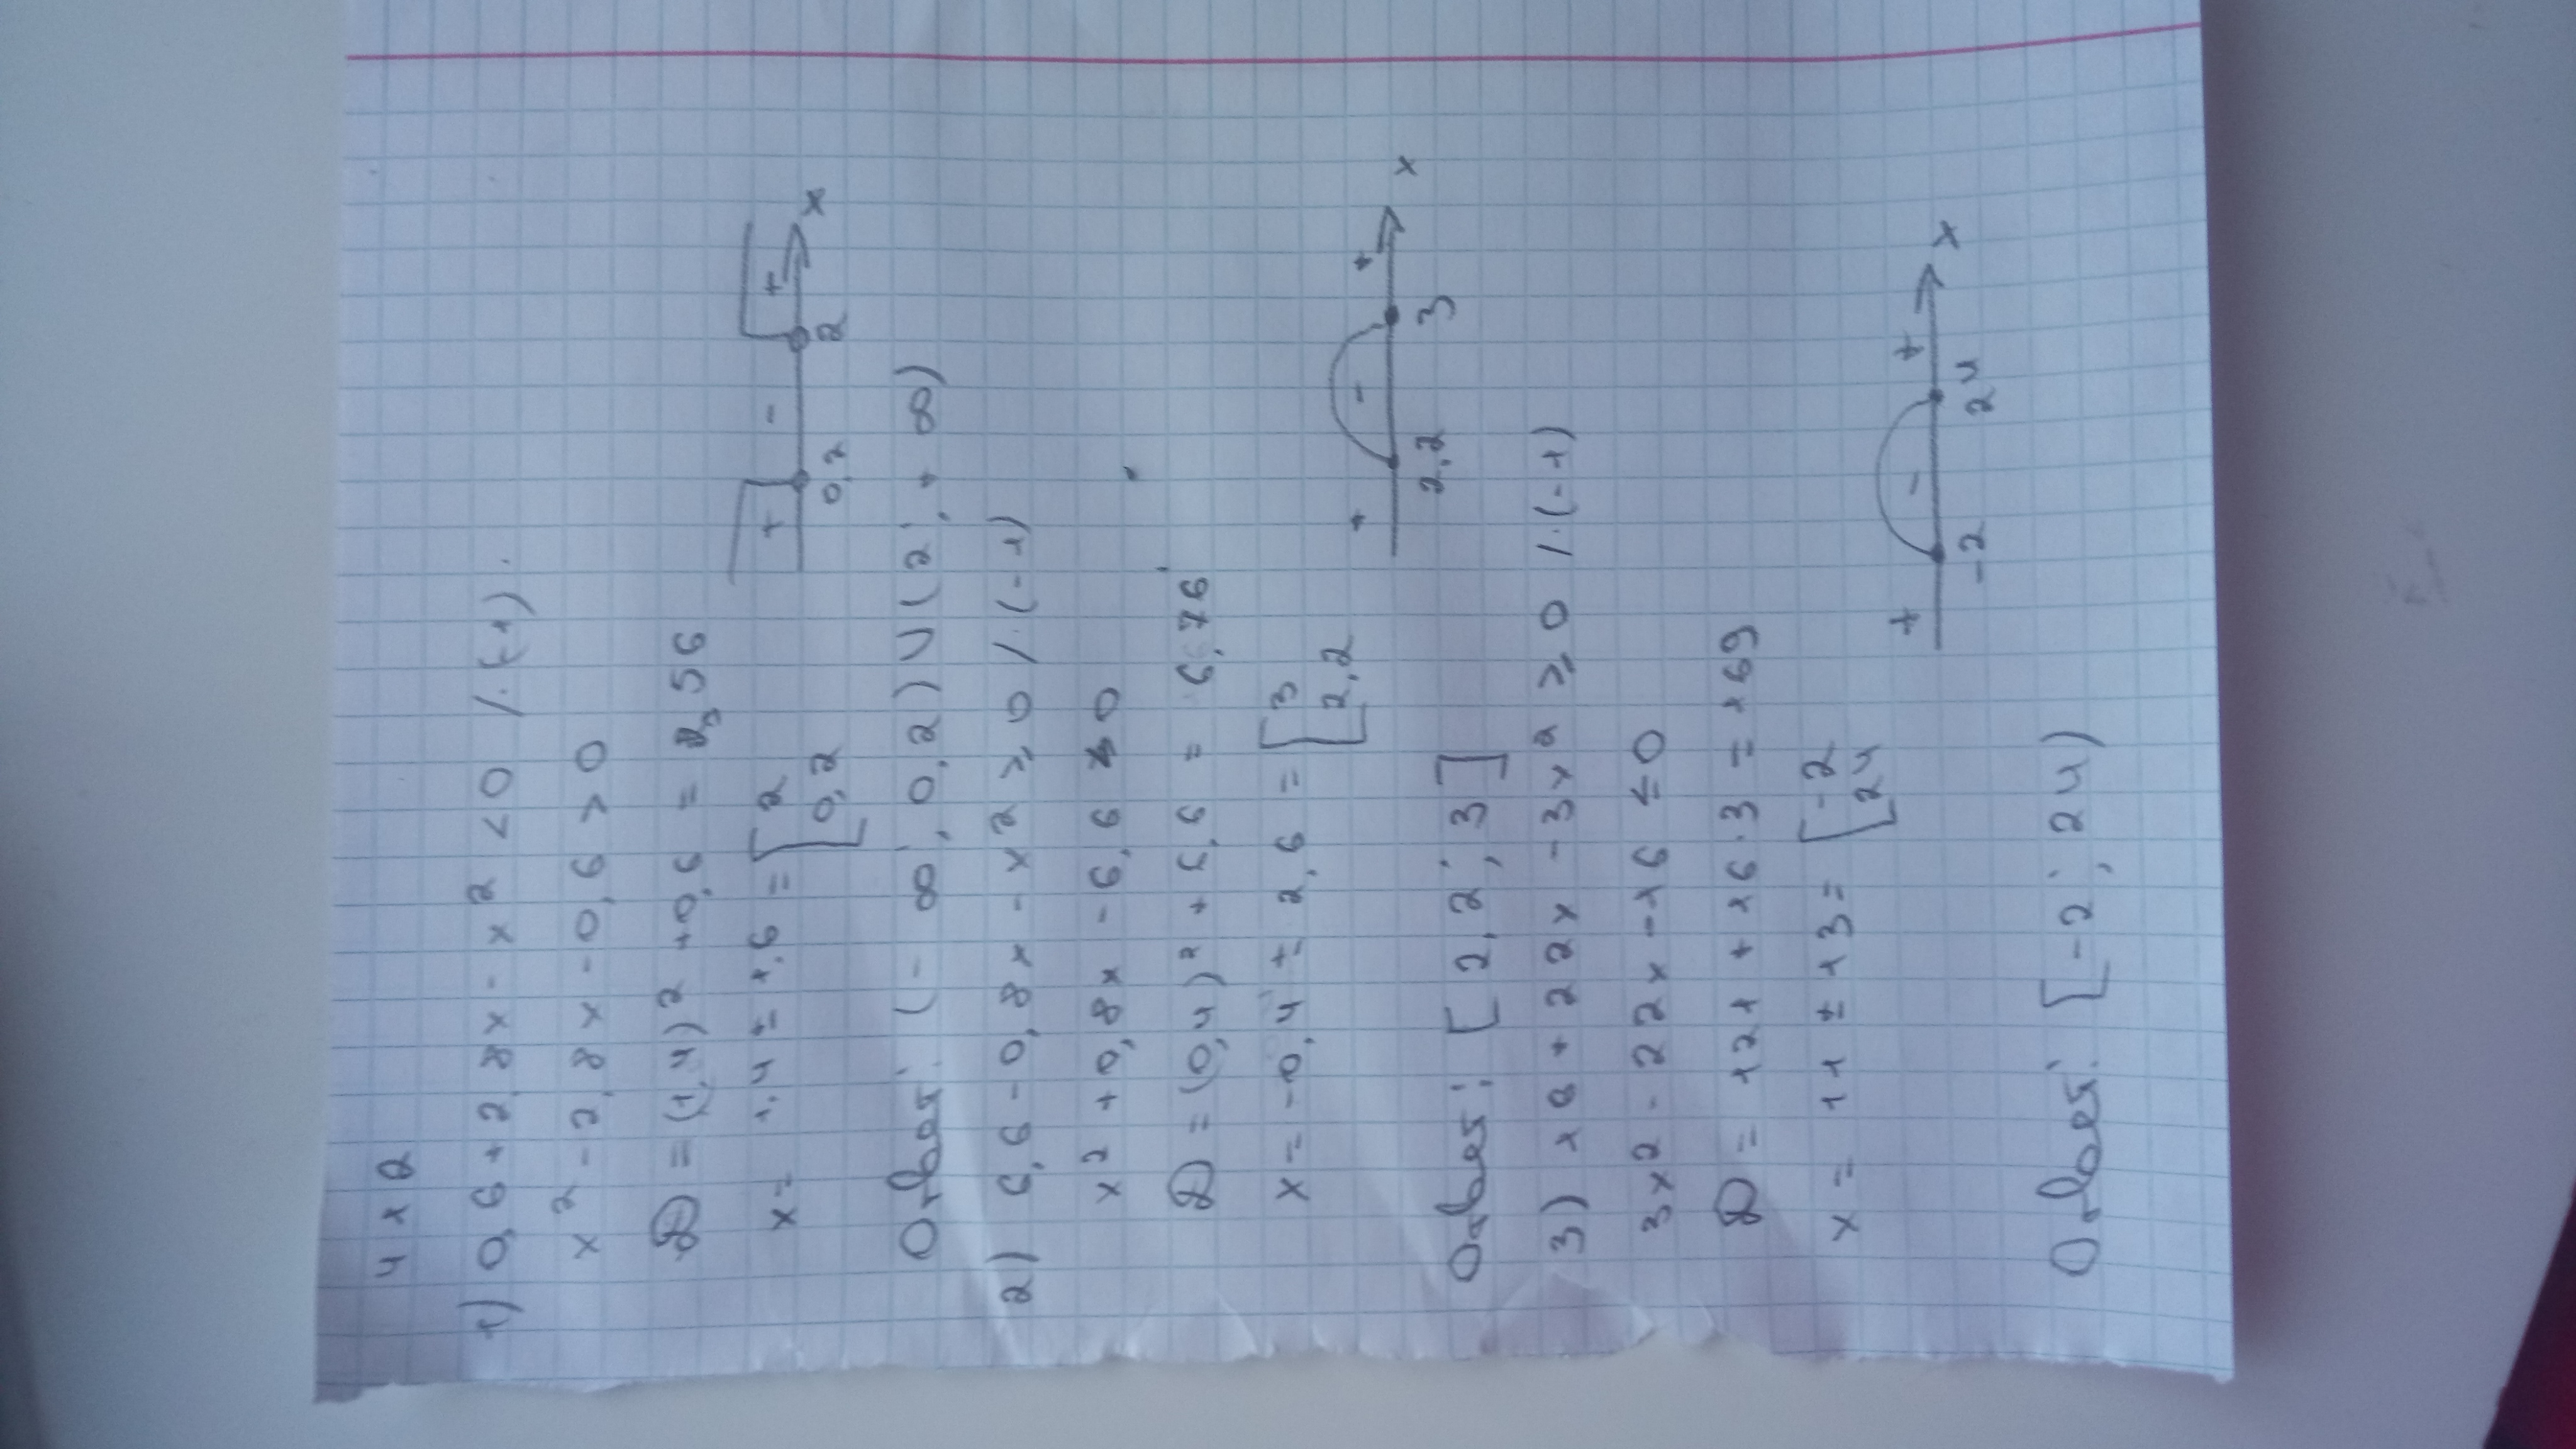 418
1) 0,6 + 2,8x - x² < 0 /·(-1).
x² - 2,8x - 0,6 > 0
D = (1,4)² + 0,6 = 2,56
x = 1,4 ± 1,6 = [2
0,2
+ - + x
0,2 2
Ответ: (-∞; 0,2) ∪ (2; +∞)
2) 6,6 - 0,8x - x² ≥ 0 /·(-1)
x² + 0,8x - 6,6 ≤ 0
D = (0,4)² + 6,6 = 6,76
x = -0,4 ± 2,6 = [3
2,2
+ - + x
2,2 3
Ответ: [2,2; 3]
3) 16 + 22x - 3x² ≥ 0 /·(-1)
3x² - 22x - 16 ≤ 0
D = 121 + 16·3 = 169
x = 11 ± 13 = [-2
24
+ - + x
-2 24
Ответ: [-2; 24)